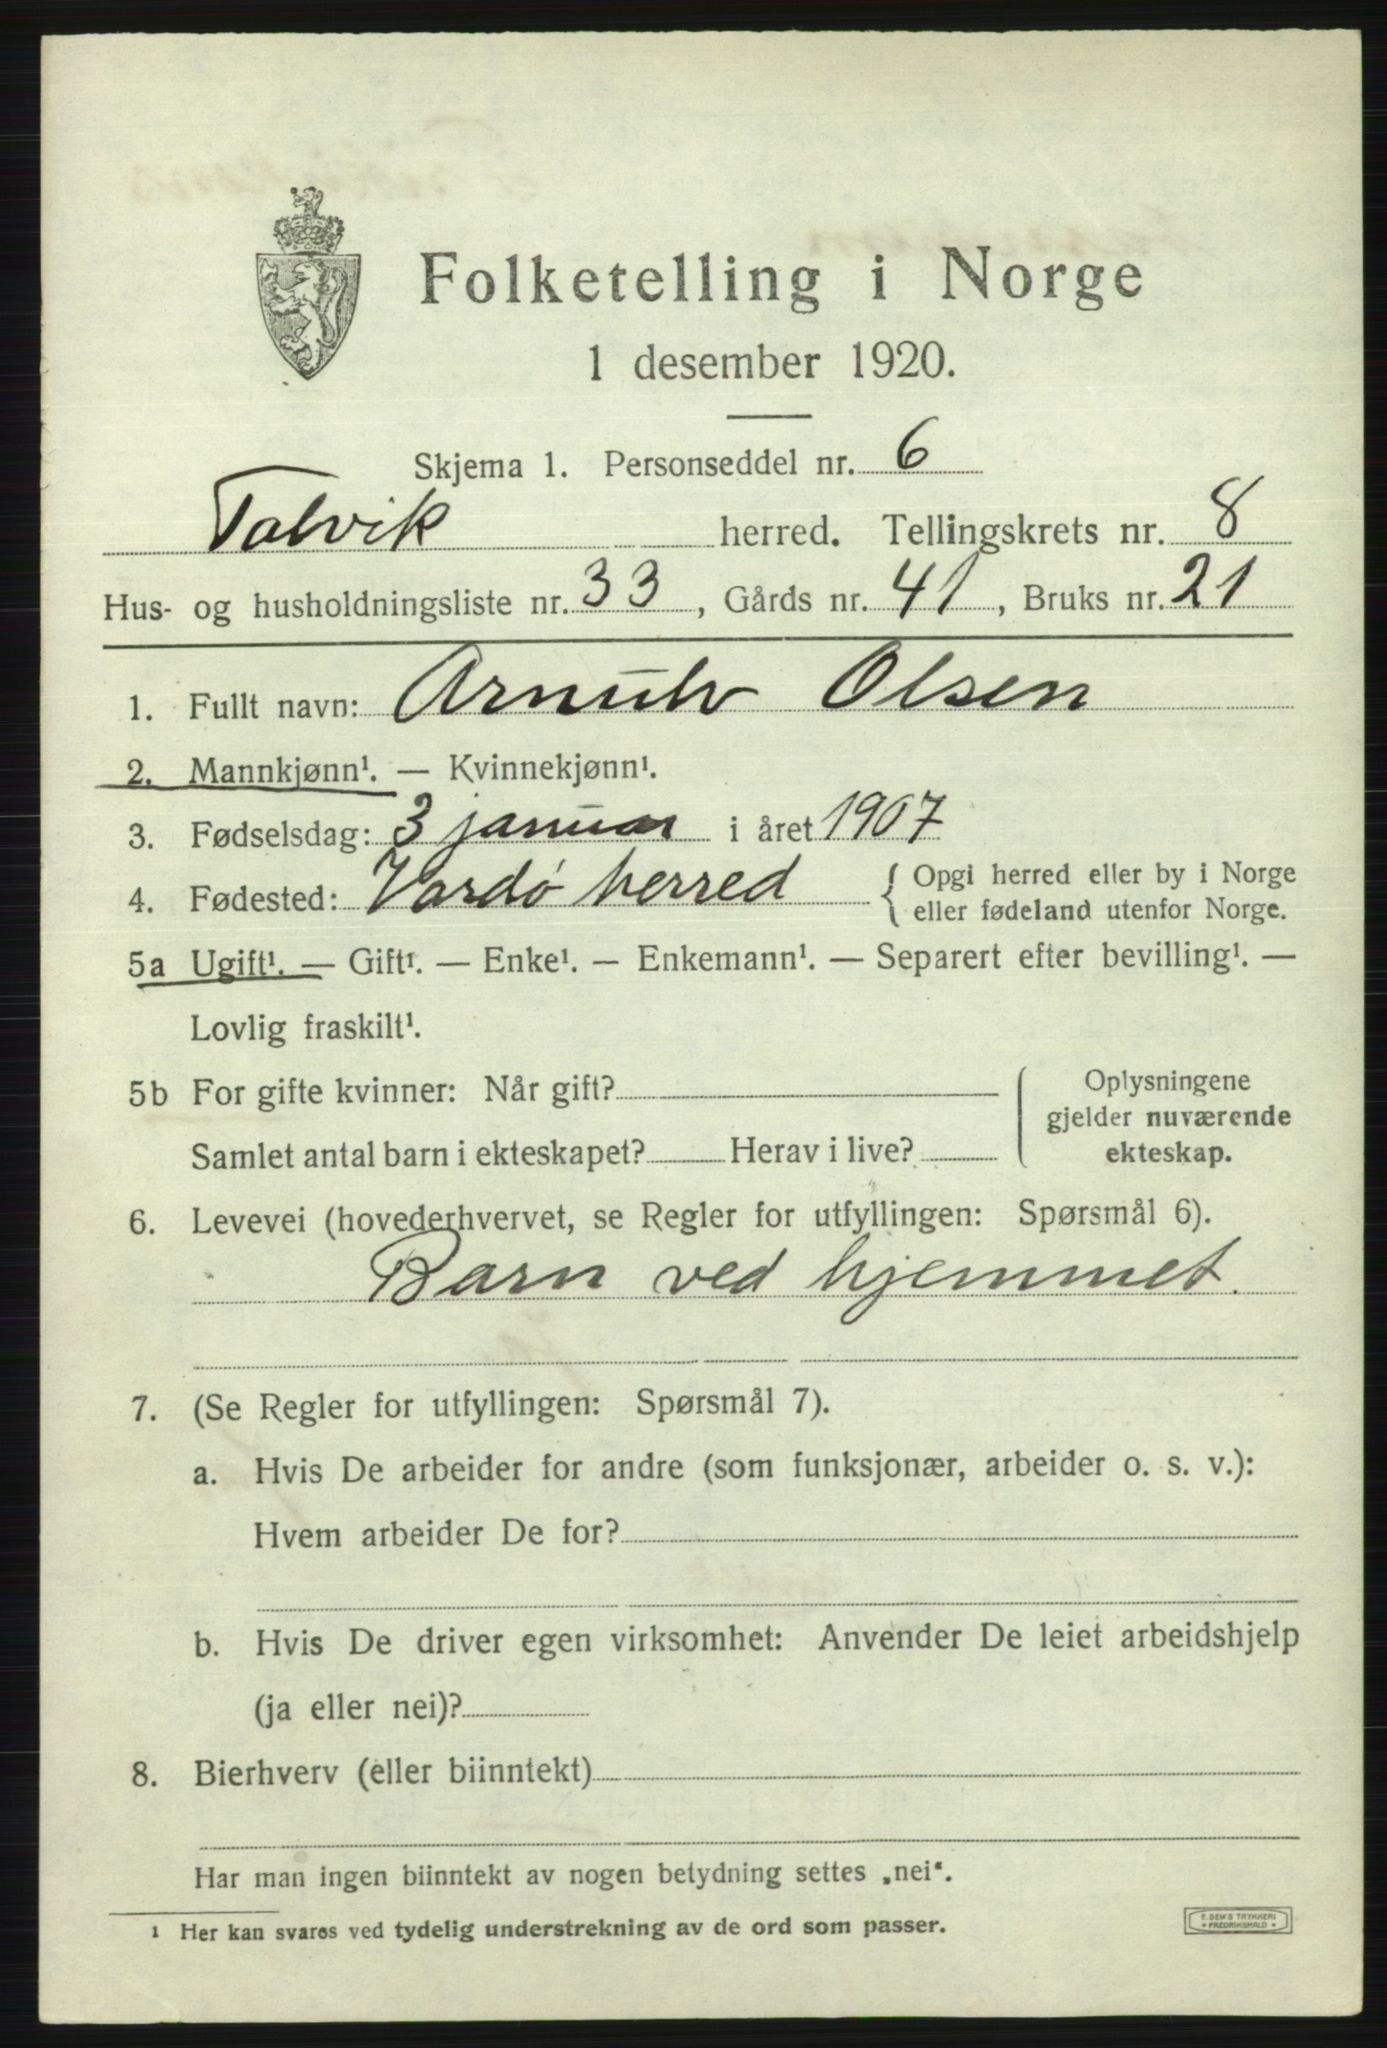 Folketelling i Norge
1 desember 1920.
Skjema 1. Personseddel nr. 6
Talvik herred. Tellingskrets nr. 8
Hus- og husholdningsliste nr. 33, Gårds nr. 41, Bruks nr. 21
1. Fullt navn: Arnulv Olsen
2. Mannkjønn¹. — Kvinnekjønn¹.
3. Fødselsdag: 3 januar i året 1907
4. Fødested: Vardø herred { Opgi herred eller by i Norge
eller fødeland utenfor Norge.
5a Ugift¹. — Gift¹. — Enke¹. — Enkemann¹. — Separert efter bevilling¹. —
Lovlig fraskilt¹.
5b For gifte kvinner: Når gift?
Samlet antal barn i ekteskapet? Herav i live?
Oplysningene
gjelder nuværende
ekteskap.
6. Levevei (hovederhvervet, se Regler for utfyllingen: Spørsmål 6).
Barn ved hjemmet.
7. (Se Regler for utfyllingen: Spørsmål 7).
a. Hvis De arbeider for andre (som funksjonær, arbeider o. s. v.):
Hvem arbeider De for?
b. Hvis De driver egen virksomhet: Anvender De leiet arbeidshjelp
(ja eller nei)?
8. Bierhverv (eller biinntekt)
Har man ingen biinntekt av nogen betydning settes „nei“.
¹ Her kan svares ved tydelig understrekning av de ord som passer.
E. SEM'S TRYKKERI
* FREDRIKSHALD *